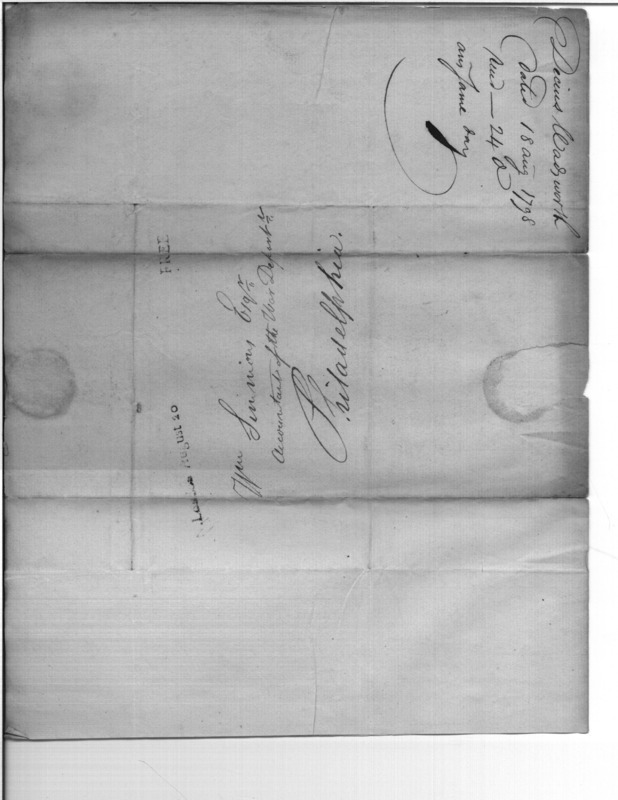 Decius Wadsworth
dated 18 aug 1798
Recd — 24 do
ans same day
FREE
August 20
Wm Simmons Esqr
Accountant of the War Departt
Philadelphia.